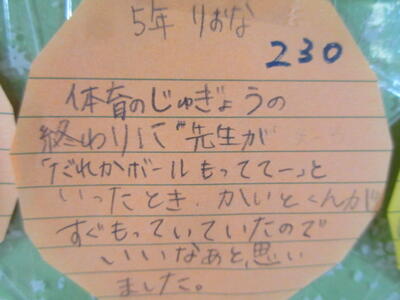 5年 りおな
230
体育のじゅぎょうの
終わりに"先生が
「だれかボールもっててー」と
いったとき、かいとくんが
すぐもっていていたので
いいなあと思い
ました。